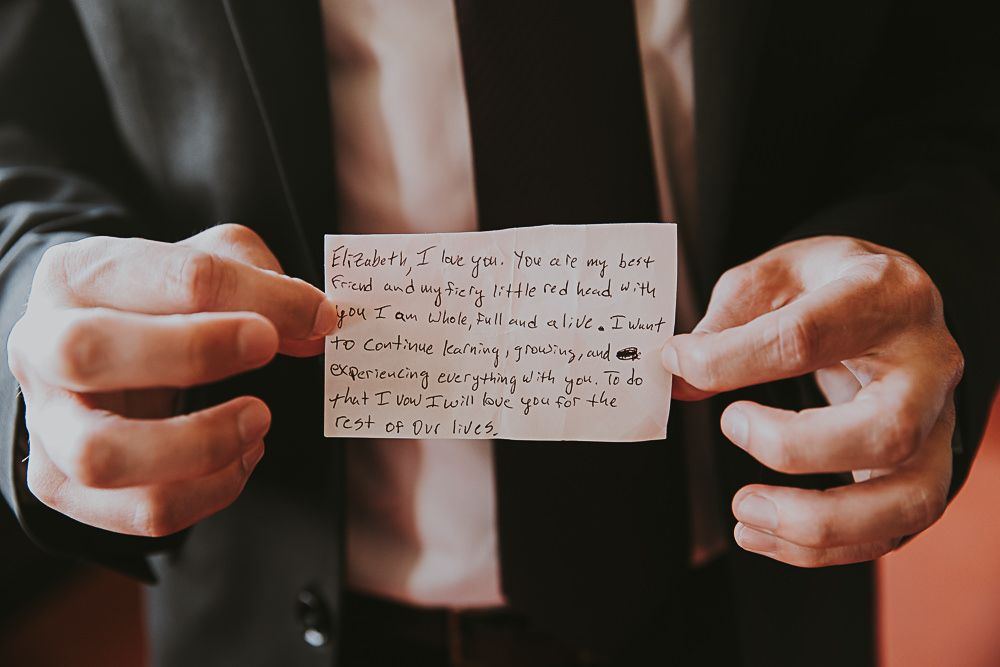 Elizabeth, I love you. You are my best
friend and my fiery little red head with
you I am whole, full and alive. I want
to continue learning, growing, and
experiencing everything with you. To do
that I vow I will love you for the
rest of our lives.